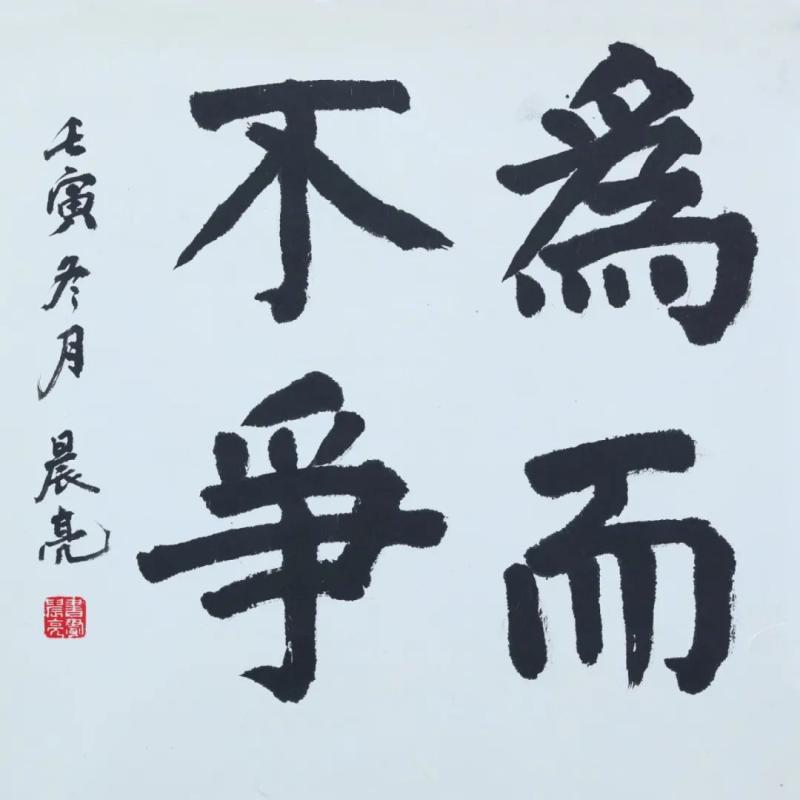 爲而
不爭
壬寅冬月 晨亮